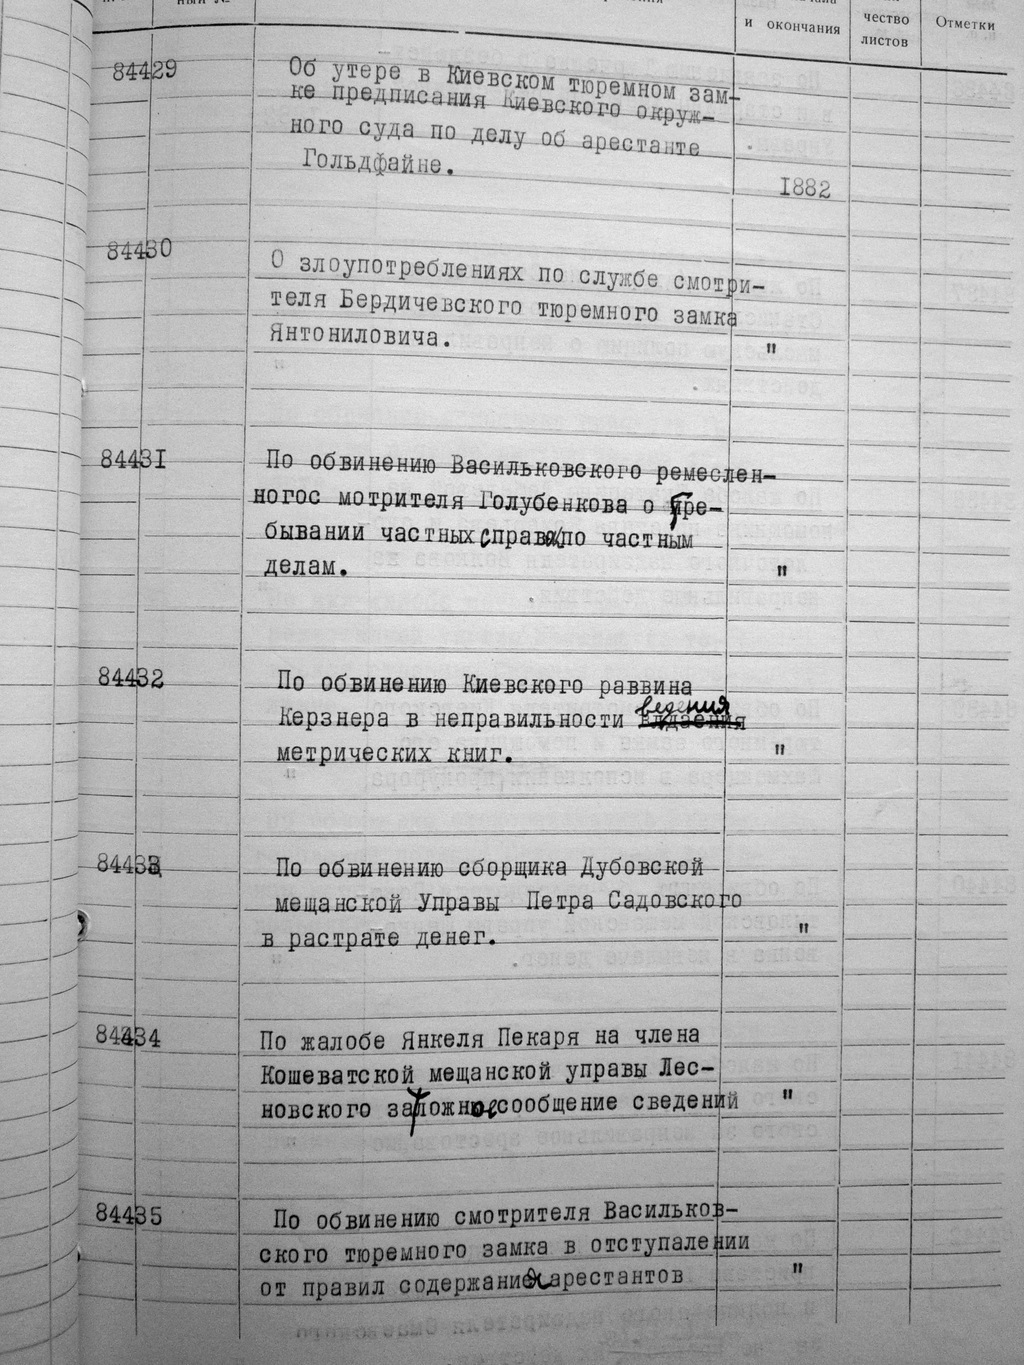 и окончания
чество
листов
Отметки
84429
Об утере в Киевском тюремном зам-
ке предписания Киевского окруж-
ного суда по делу об арестанте
Гольдфайне.
1882
84430
О злоупотреблениях по службе смотри-
теля Бердичевского тюремного замка
Янтониловича.
"
84431
По обвинению Васильковского ремеслен-
ногос мотрителя Голубенкова о тре-
бывании частных справок по частным
делам.
"
84432
По обвинению Киевского раввина
Керзнера в неправильности ведения
метрических книг.
"
84433
По обвинению сборщика Дубовской
мещанской Управы Петра Садовского
в растрате денег.
"
84434
По жалобе Янкеля Пекаря на члена
Кошеватской мещанской управы Лес-
новского за ложное сообщение сведений
"
84435
По обвинению смотрителя Васильков-
ского тюремного замка в отступалении
от правил содержания арестантов
"